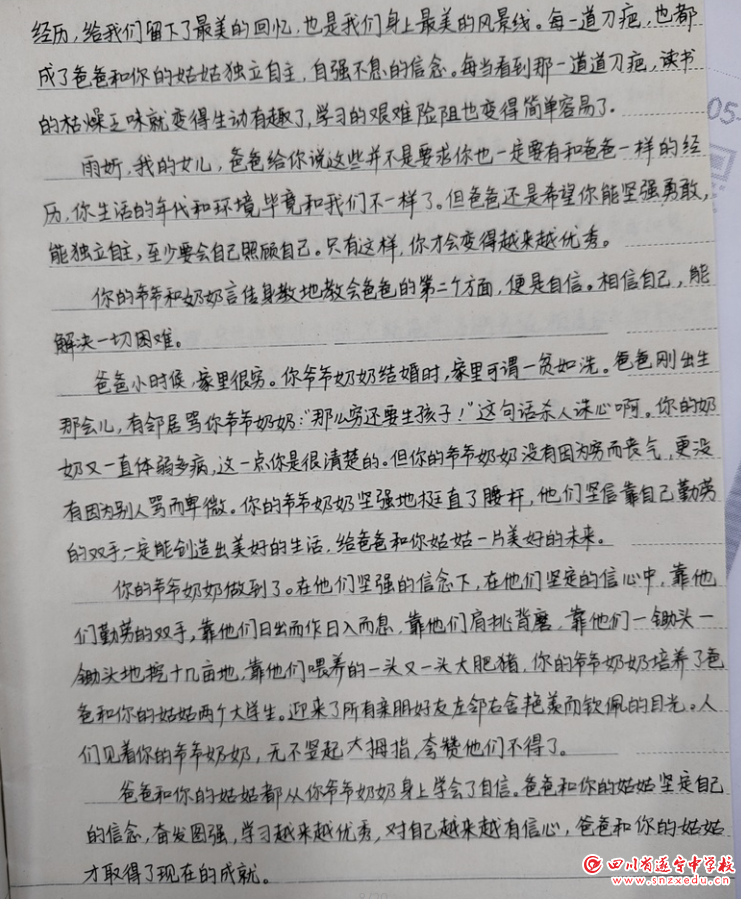 经历，给我们留下了最美的回忆，也是我们身上最美的风景线。每一道刀疤，也都
成了爸爸和你的姑姑独立自主，自强不息的信念。每当看到那一道道刀疤，读书
的枯燥乏味就变得生动有趣了，学习的艰难险阻也变得简单容易了.
05
雨妡，我的女儿，爸爸给你说这些并不是要求你也一定要有和爸爸一样的经
历，你生活的年代和环境毕竟和我们不一样了。但爸爸还是希望你能坚强勇敢，
能独立自主，至少要会自己照顾自己。只有这样，你才会变得越来越优秀。
你的爷爷和奶奶言传身教地教会爸爸的第二个方面，便是自信。相信自己，能
解决一切困难。
爸爸小时候，家里很穷。你爷爷奶奶结婚时，家里可谓一贫如洗。爸爸刚出生
那会儿，有邻居骂你爷爷奶奶：“那么穷还要生孩子！”这句话杀人诛心啊。你的奶
奶又一直体弱多病，这一点你是很清楚的。但你的爷爷奶奶没有因为穷而丧气，更没
有因为别人骂而卑微。你的爷爷奶奶坚强地挺直了腰杆，他们坚信靠自己勤劳
的双手一定能创造出美好的生活，给爸爸和你姑姑一片美好的未来。
你的爷爷奶奶做到了。在他们坚强的信念下，在他们坚定的信心中，靠他
们勤劳的双手，靠他们日出而作日入而息，靠他们肩挑背磨，靠他们一锄头一
锄头地挖十几亩地，靠他们喂养的一头又一头大肥猪，你的爷爷奶奶培养了爸
爸和你的姑姑两个大学生。迎来了所有亲朋好友左邻右舍艳羡而钦佩的目光。人
们见着你的爷爷奶奶，无不竖起大拇指，夸赞他们不得了。
爸爸和你的姑姑都从你爷爷奶奶身上学会了自信。爸爸和你的姑姑坚定自己
的信念，奋发图强，学习越来越优秀，对自己越来越有信心，爸爸和你的姑姑
才取得了现在的成就。
四川省遂宁中学校
www.snzxedu.cn